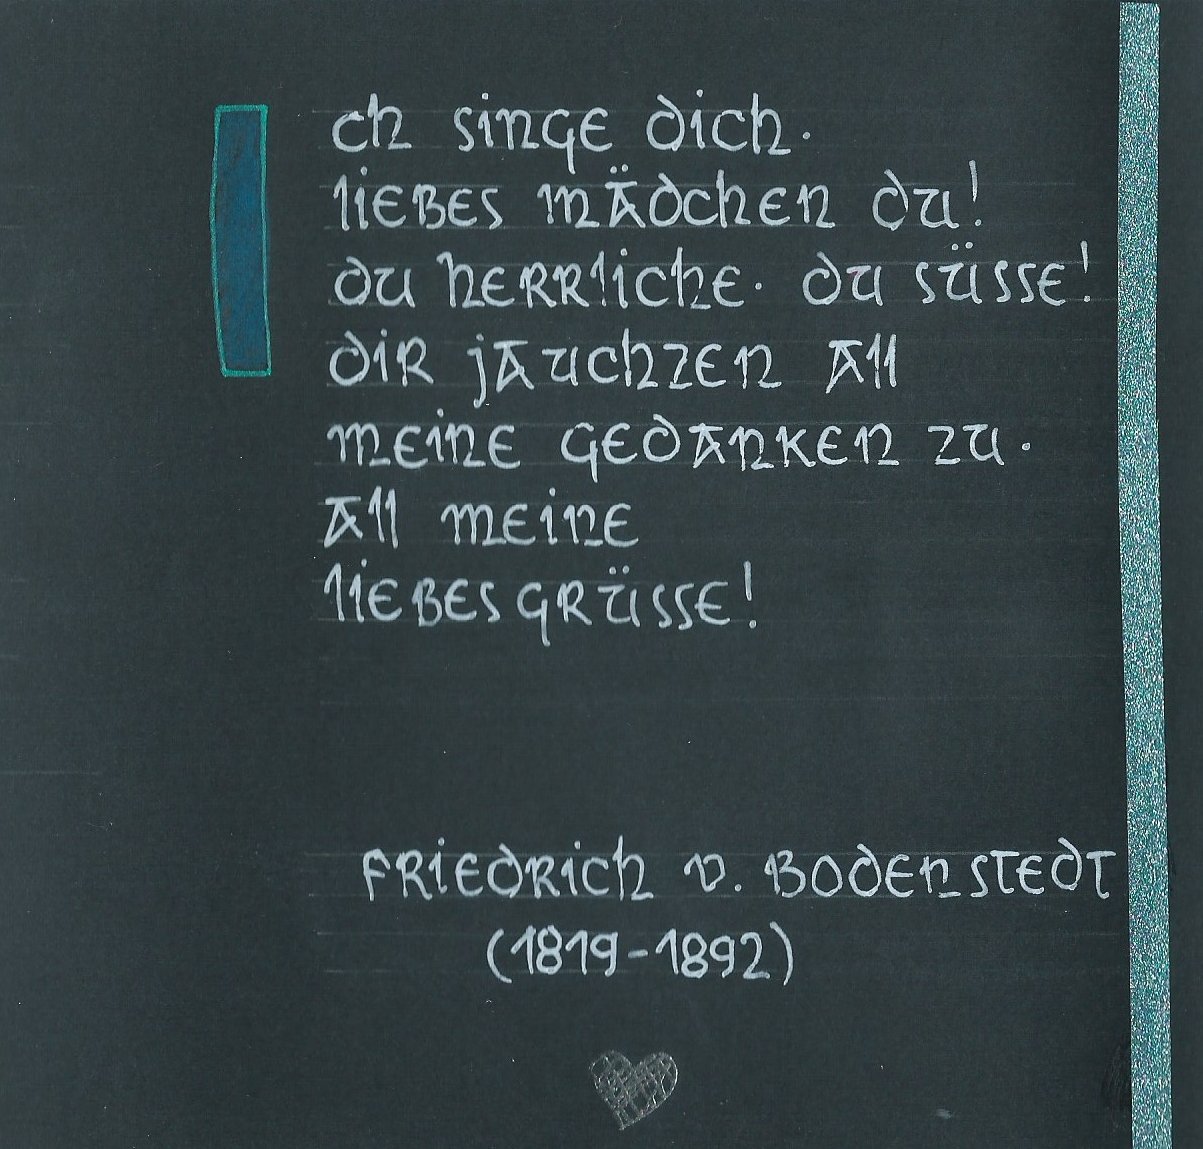 Ich singe dich.
liebes mädchen du!
du herrliche. du süsse!
dir jauchzen all
meine gedanken zu.
all meine
liebesgrüsse!
Friedrich v. Bodenstedt
(1819-1892)